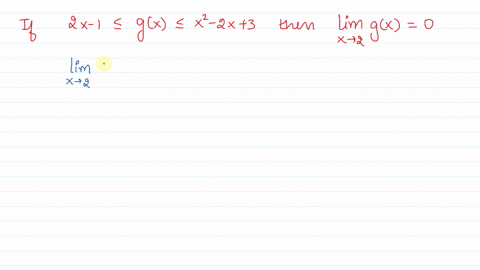 If 2x-1 ≤ g(x) ≤ x²-2x+3 then lim x→2 g(x) = 0
lim x→2